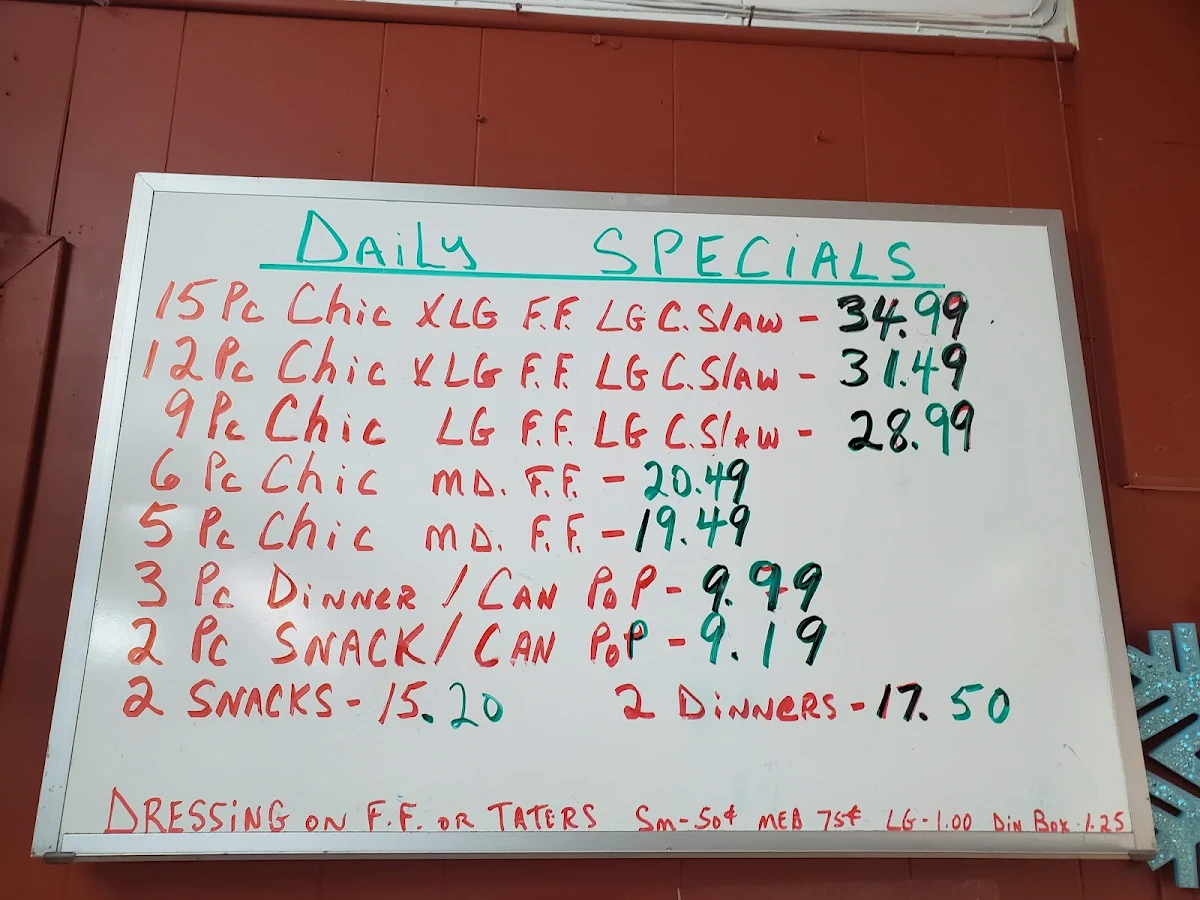 DAiLy SPECiALS
15 Pc Chic XLG F.F. LG C.SlAW - 34.99
12 Pc Chic XLG F.F. LG C.SlAW - 31.49
9 Pc Chic LG F.F. LG C.SlAW - 28.99
6 Pc Chic MD. F.F. - 20.49
5 Pc Chic MD. F.F. - 19.49
3 Pc DiNNER / CAN PoP - 9.99
2 Pc SNACK / CAN PoP - 9.19
2 SNACKS - 15.20 2 DiNNeRS - 17.50
DRESSiNG ON F.F. OR TATERS Sm - 50¢ MED 75¢ LG - 1.00 Din Box - 1.25